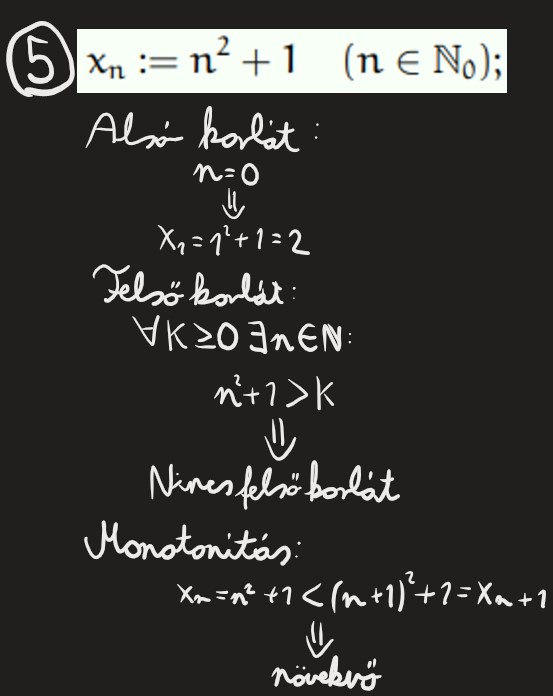 5 xₙ := n² + 1 (n ∈ ℕ₀);
Alsó korlát:
n=0
⇓
X₁=1²+1=2
Felső korlát:
∀K≥0 ∃n∈ℕ:
n²+1>K
⇓
Nincs felső korlát
Monotonitás:
xₙ=n²+1<(n+1)²+1=Xₙ+1
⇓
növekvő